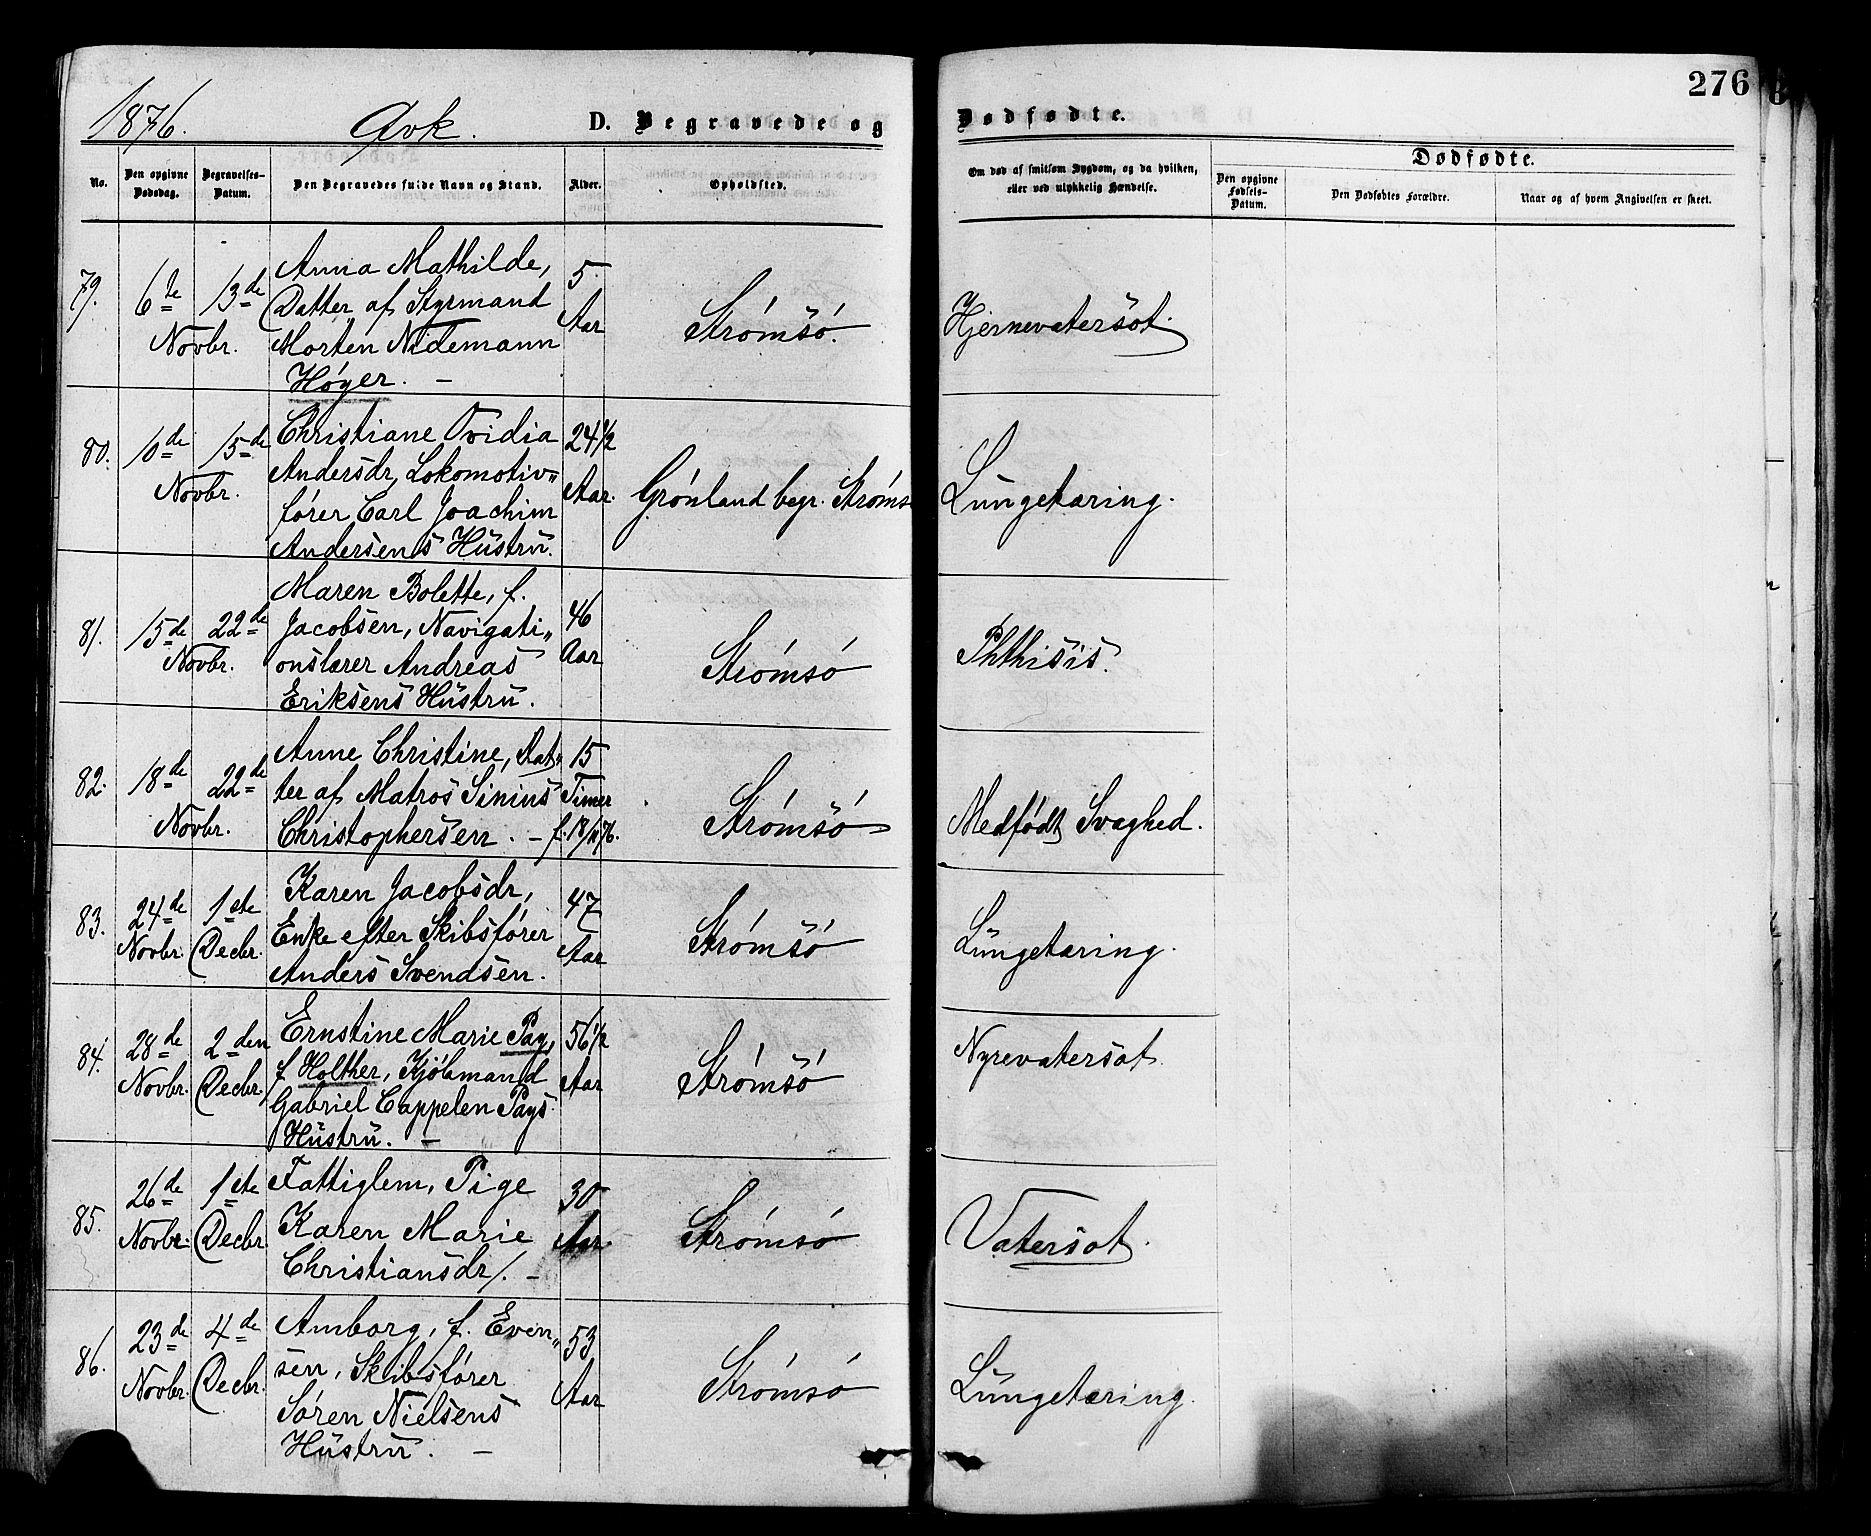 276
1876. Qvk. D. Begravede og Dødfødte.
No. Den opgivne Dødsdag. Begravelses-Datum. Den Begravedes fulde Navn og Stand. Alder. Opholdsted. Om død af smitsom Sygdom, og da hvilken, eller ved ulykkelig Hændelse. Dødfødte.
Den opgivne Fødsels-Datum. Den Dødfødtes Forældre. Naar og af hvem Angivelsen er skeet.
79. 6te 13de Novbr.
Anna Mathilde,
Datter af Styrmand
Morten Nidemann
Høyer. —
5 Aar
Strømsø.
Hjernevatersot.
80. 10de 15de Novbr.
Christiane Ovidia
Andersdr, Lokomotiv„
fører Carl Joachim
Andersens Hustru.
24½ Aar.
Grønland begr. Strøms
Lungetæring.
81. 15de 22de Novbr.
Maren Bolette, f.
Jacobsen, Navigati„
onslærer Andreas
Eriksens Hustru.
46 Aar
Strømsø
Phthisis.
82. 18de 22de Novbr.
Anne Christine, Dat„
ter af Matros Sinius
Christophersen. —
15 Timer
f. 18/11 76.
Strømsø
Medfødt Svaghed.
83. 24de Novbr. 1ste Decbr.
Karen Jacobsdr,
Enke efter Skibsfører
Anders Svendsen.
47 Aar
Strømsø
Lungetæring.
84. 28de Novbr. 2den Decbr.
Ernstine Marie Pay,
f. Holther, Kjøbmand
Gabriel Cappelen Pays
Hustru. —
56½ Aar
Strømsø
Nyrevatersot.
85. 26de Novbr. 1ste Decbr.
Fattiglem, Pige
Karen Marie
Christiansdr/. —
30 Aar.
Strømsø
Vatersot.
86. 23de Novbr. 4de Decbr.
Amborg, f. Even„
sen, Skibsfører
Søren Nielsens
Hustru. —
53 Aar
Strømsø
Lungetæring.